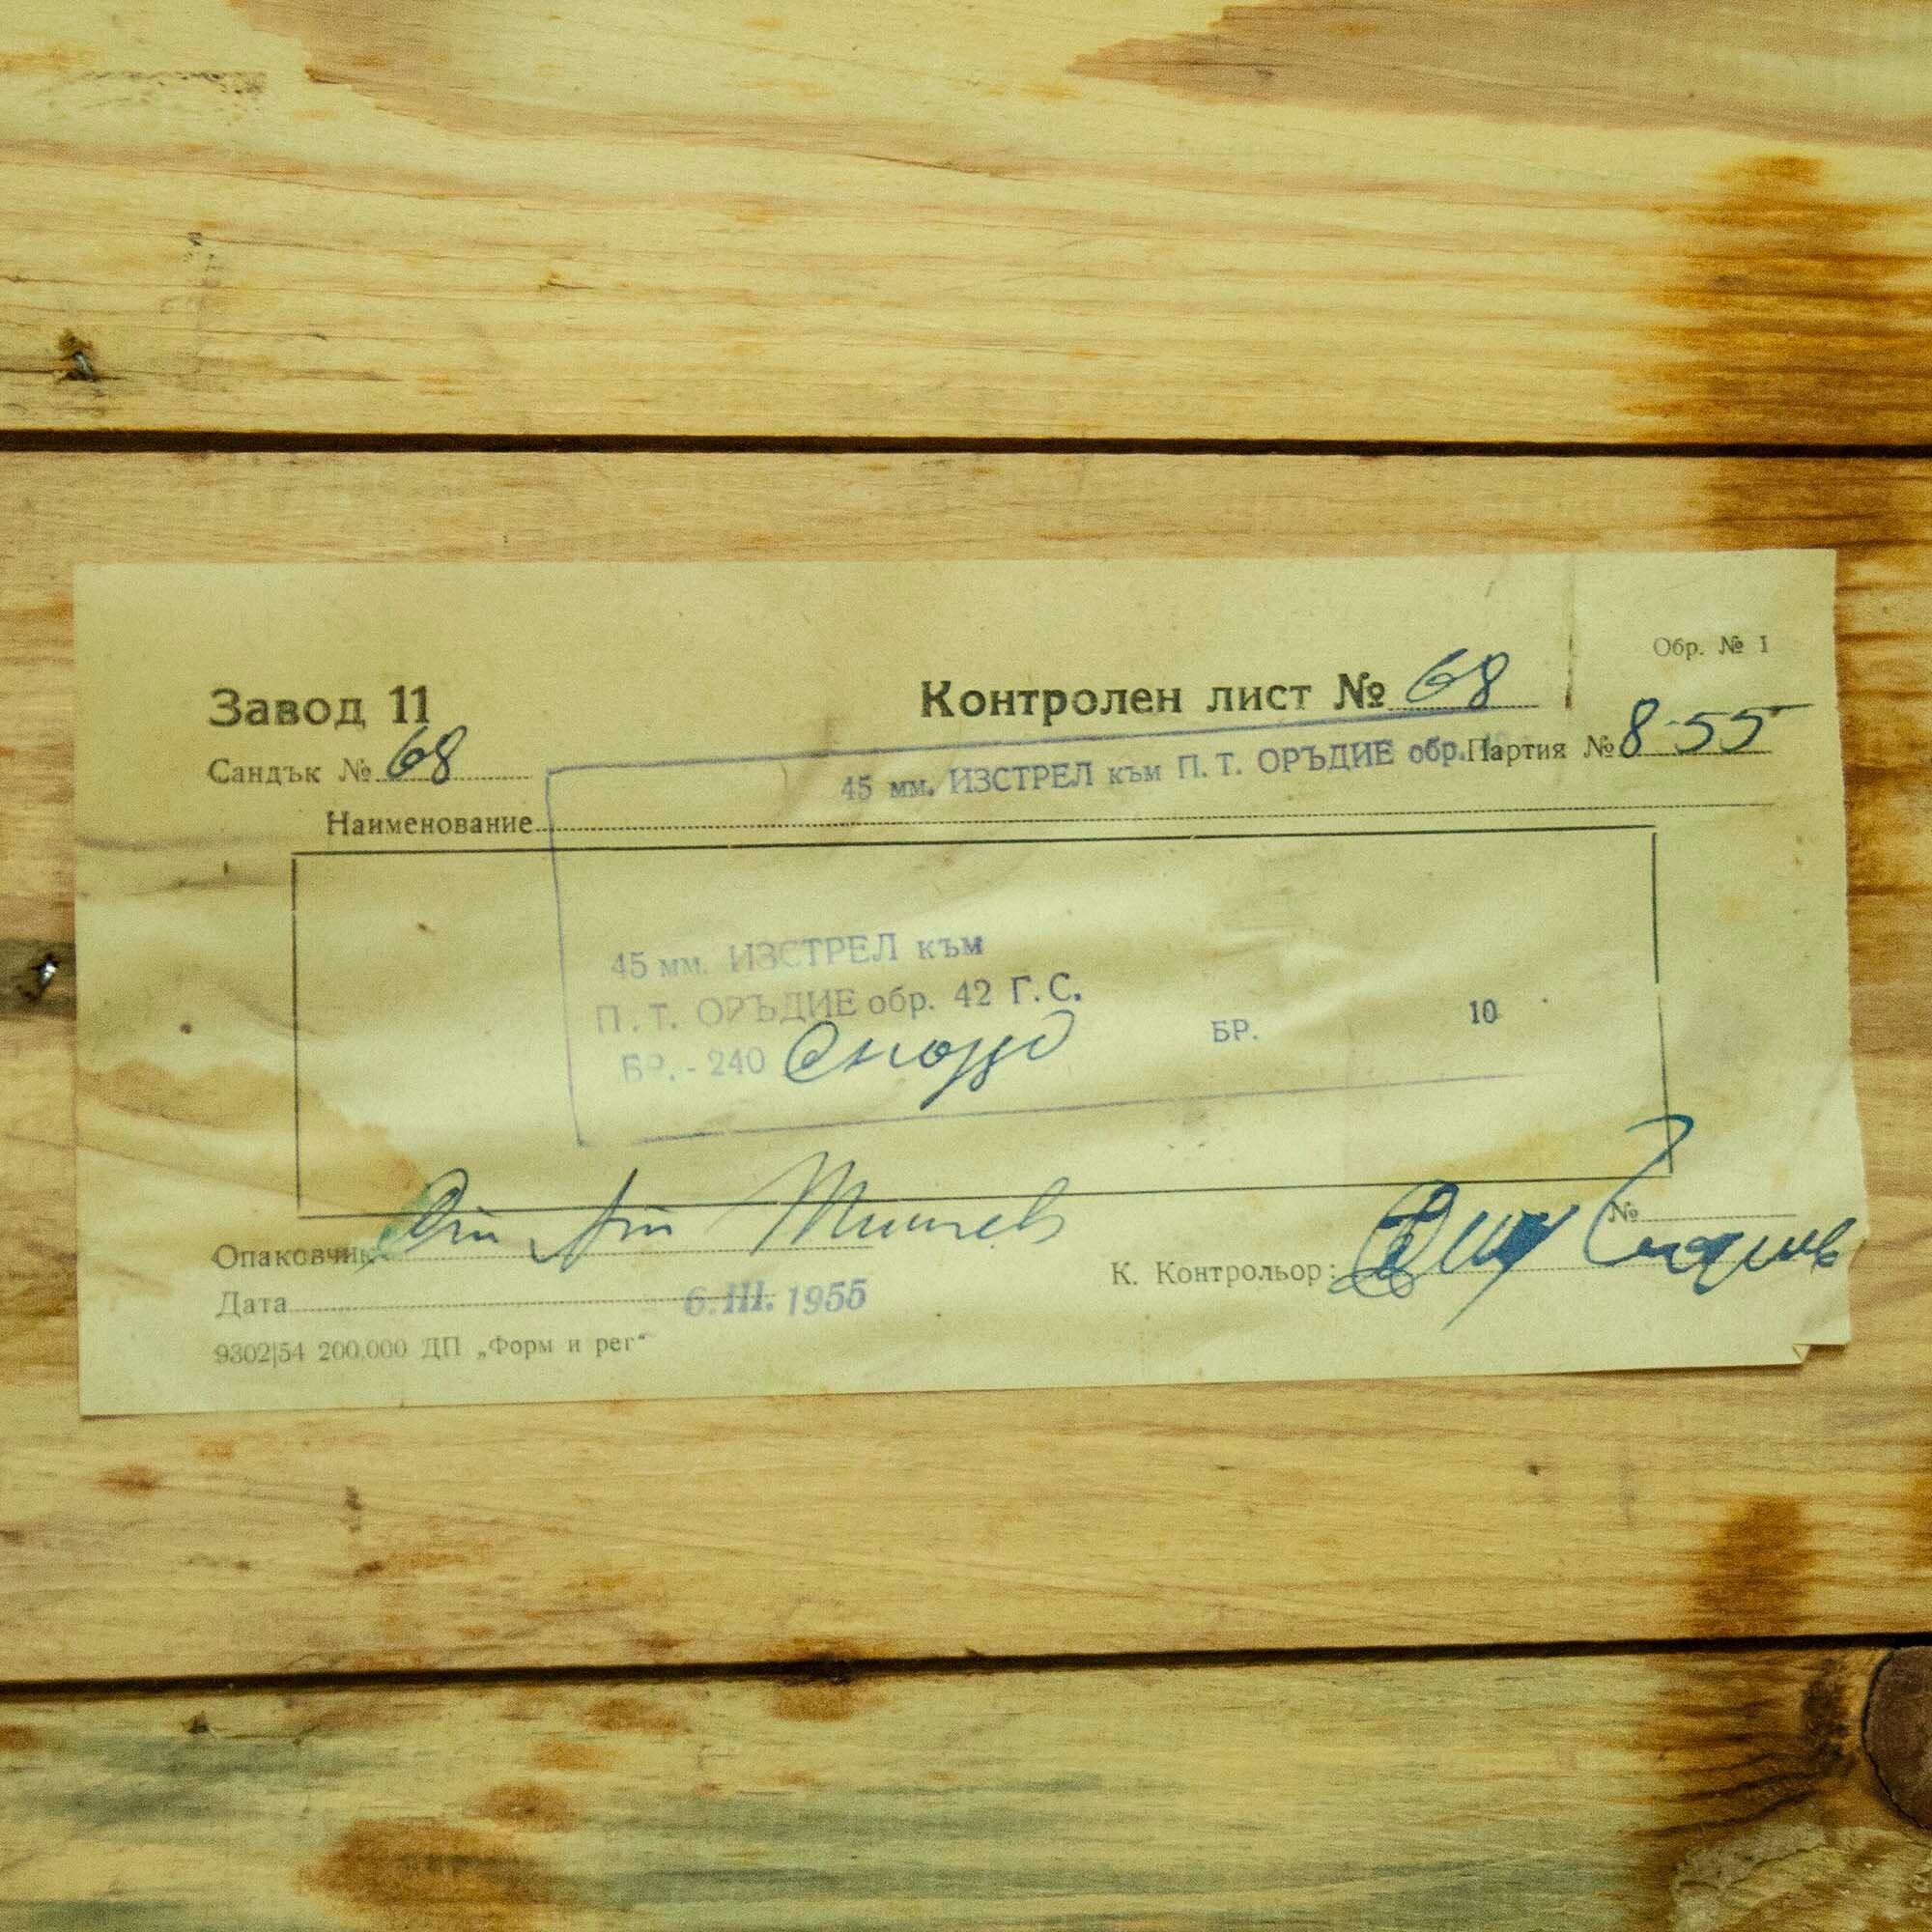 Обр. № 1
Завод 11
Контролен лист № 68
Сандък № 68
Партия № 8-55
45 мм. ИЗСТРЕЛ към П. Т. ОРЪДИЕ обр.
Наименование
45 мм. ИЗСТРЕЛ към
П. Т. ОРЪДИЕ обр. 42 Г. С.
БР. - 240
БР. 10
№
Опаковчик
К. Контрольор:
Дата 6. III. 1955
9302|54 200.000 ДП „Форм и рег“